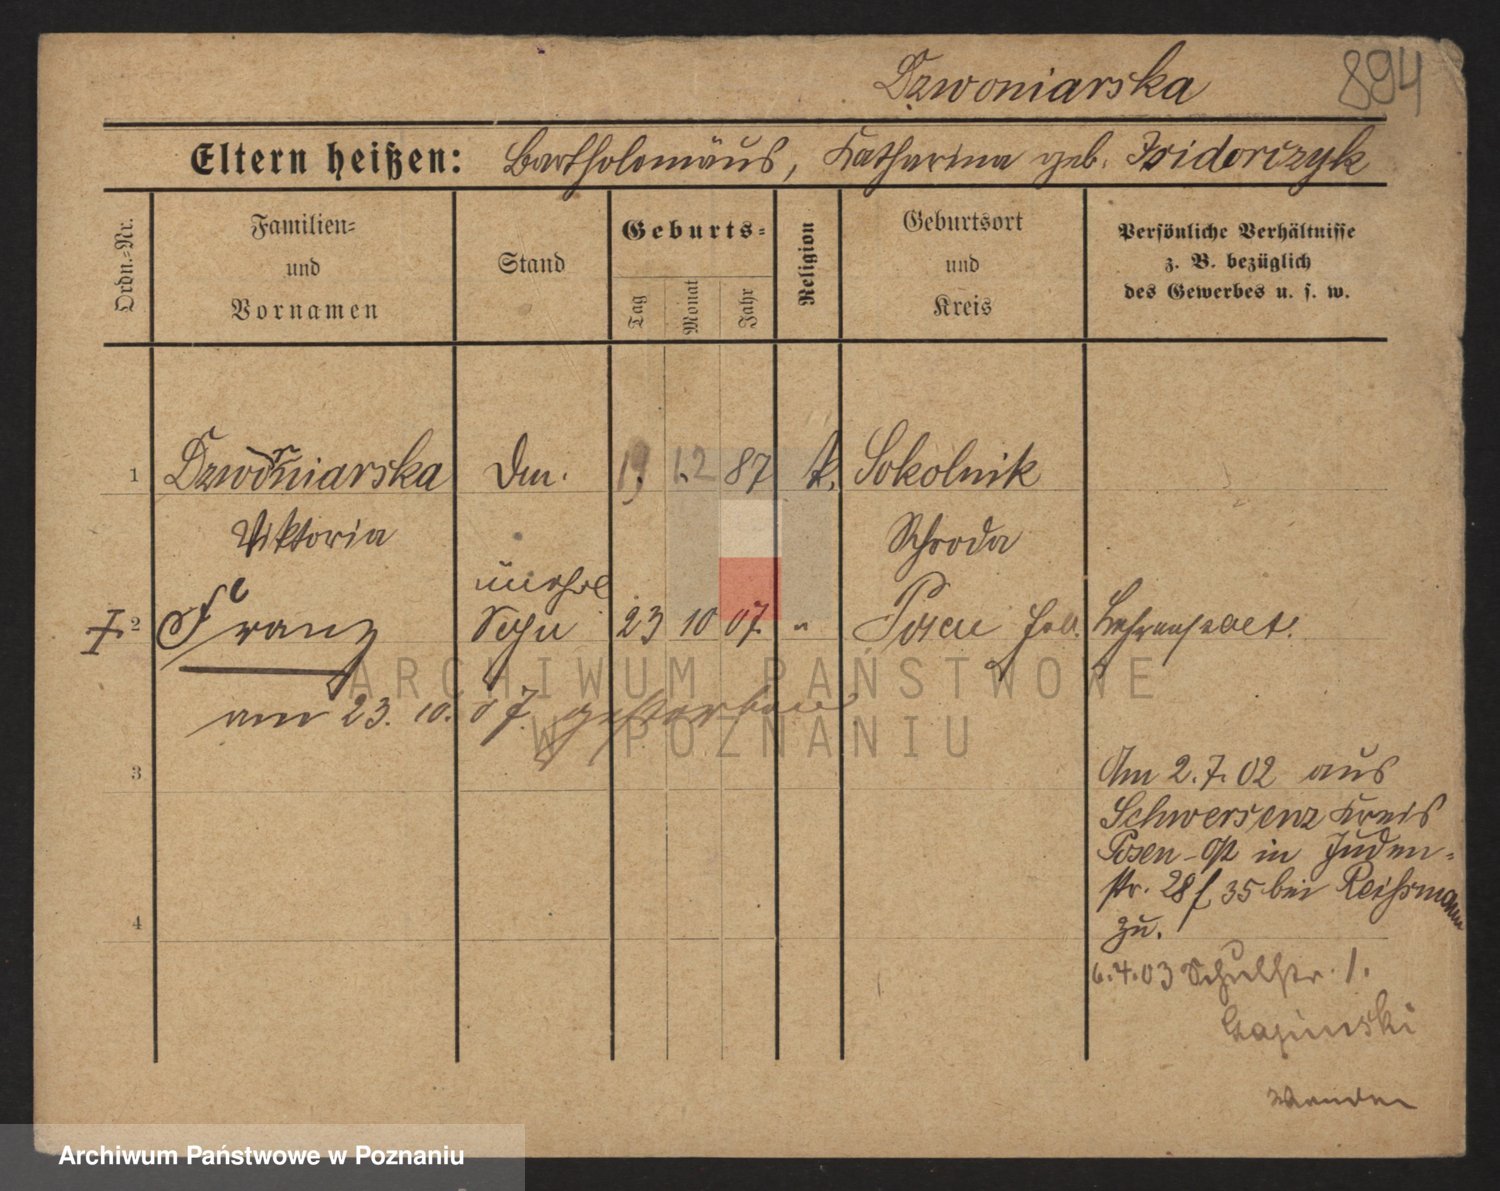 Dzwoniarska 894
Eltern heißen: Bartholomäus, Katharina geb. Isidorczyk
Ordn.-Nr.
Familien-
und
Vornamen
Stand
Geburts-
Tag
Monat
Jahr
Religion
Geburtsort
und
Kreis
Persönliche Verhältnisse
z. B. bezüglich
des Gewerbes u. s. w.
1 Dzwoniarska 19. 12 87 k. Sokolnik
Viktoria Schroda
unehel.
2 Franz Sohn 23 10 07 " Posen Heb. Lehranstalt.
am 23. 10. 07. gestorben
3
Am 2.7.02 aus
Schwersenz Kreis
Posen-Ost in Juden-
str. 28 f 35 bei Reihsmann
zu.
4
6.4.03 Schulstr. 1.
Wenden
ARCHIWUM PAŃSTWOWE
W POZNANIU
Archiwum Państwowe w Poznaniu